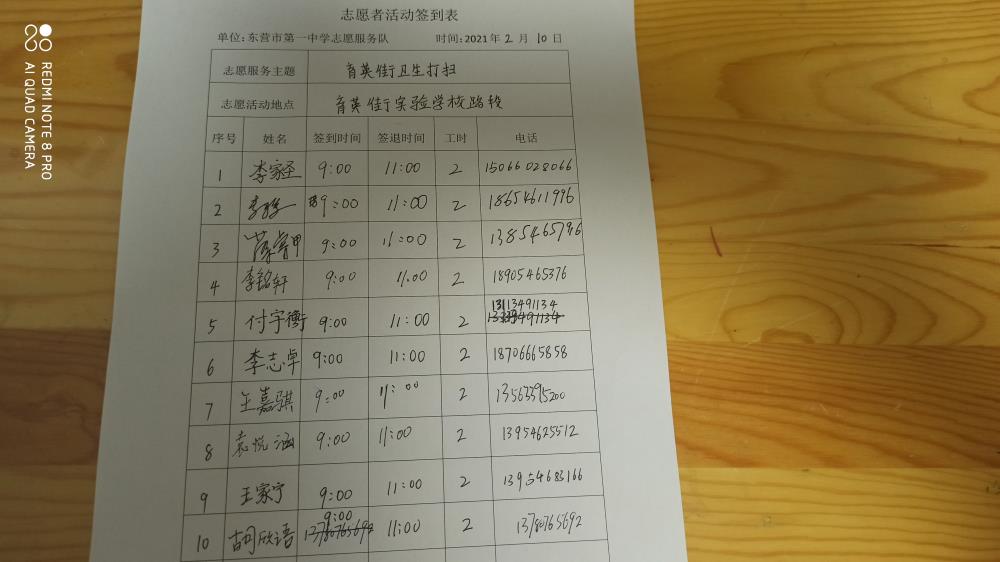 志愿者活动签到表
单位:东营市第一中学志愿服务队 时间:2021年2月10日
志愿服务主题 育英街卫生打扫
志愿活动地点 育英街实验学校路段
序号 姓名 签到时间 签退时间 工时 电话
1 李家圣 9:00 11:00 2 15066028066
2 9:00 11:00 2 18654611996
3 9:00 11:00 2 1385465796
4 李铭轩 9:00 11:00 2 18905465376
5 付宇衡 9:00 11:00 2 13113491134
6 李志卓 9:00 11:00 2 18706665858
7 王嘉骐 9:00 11:00 2 13563395200
8 袁悦涵 9:00 11:00 2 13954625512
9 王家宁 9:00 11:00 2 13954683166
10 胡欣语 9:00 11:00 2 13780765692
REDMI NOTE 8 PRO
AI QUAD CAMERA